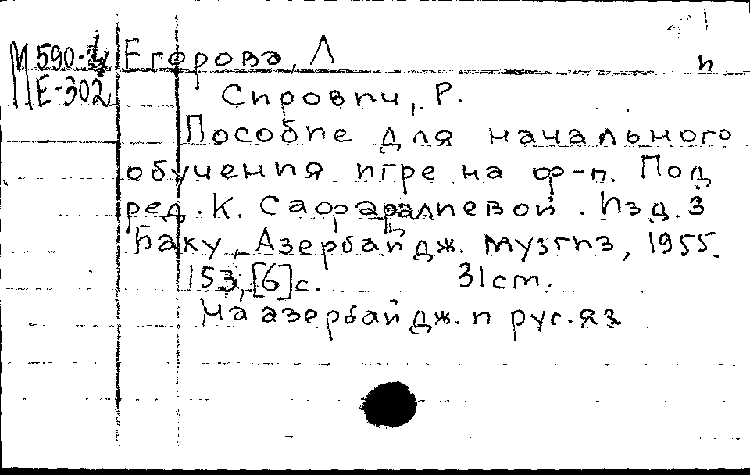 М 590-4 Егорова, Л
Е-302 н
Сировіч, Р.
Пособие для начального
обучения игре на ф-п. Под
ред. К. Сафаралиевой. Изд. 3
Баку, Азербайдж. Музгиз, 1955.
153, [6] с. 31 cm.
На азербайдж. и рус. яз